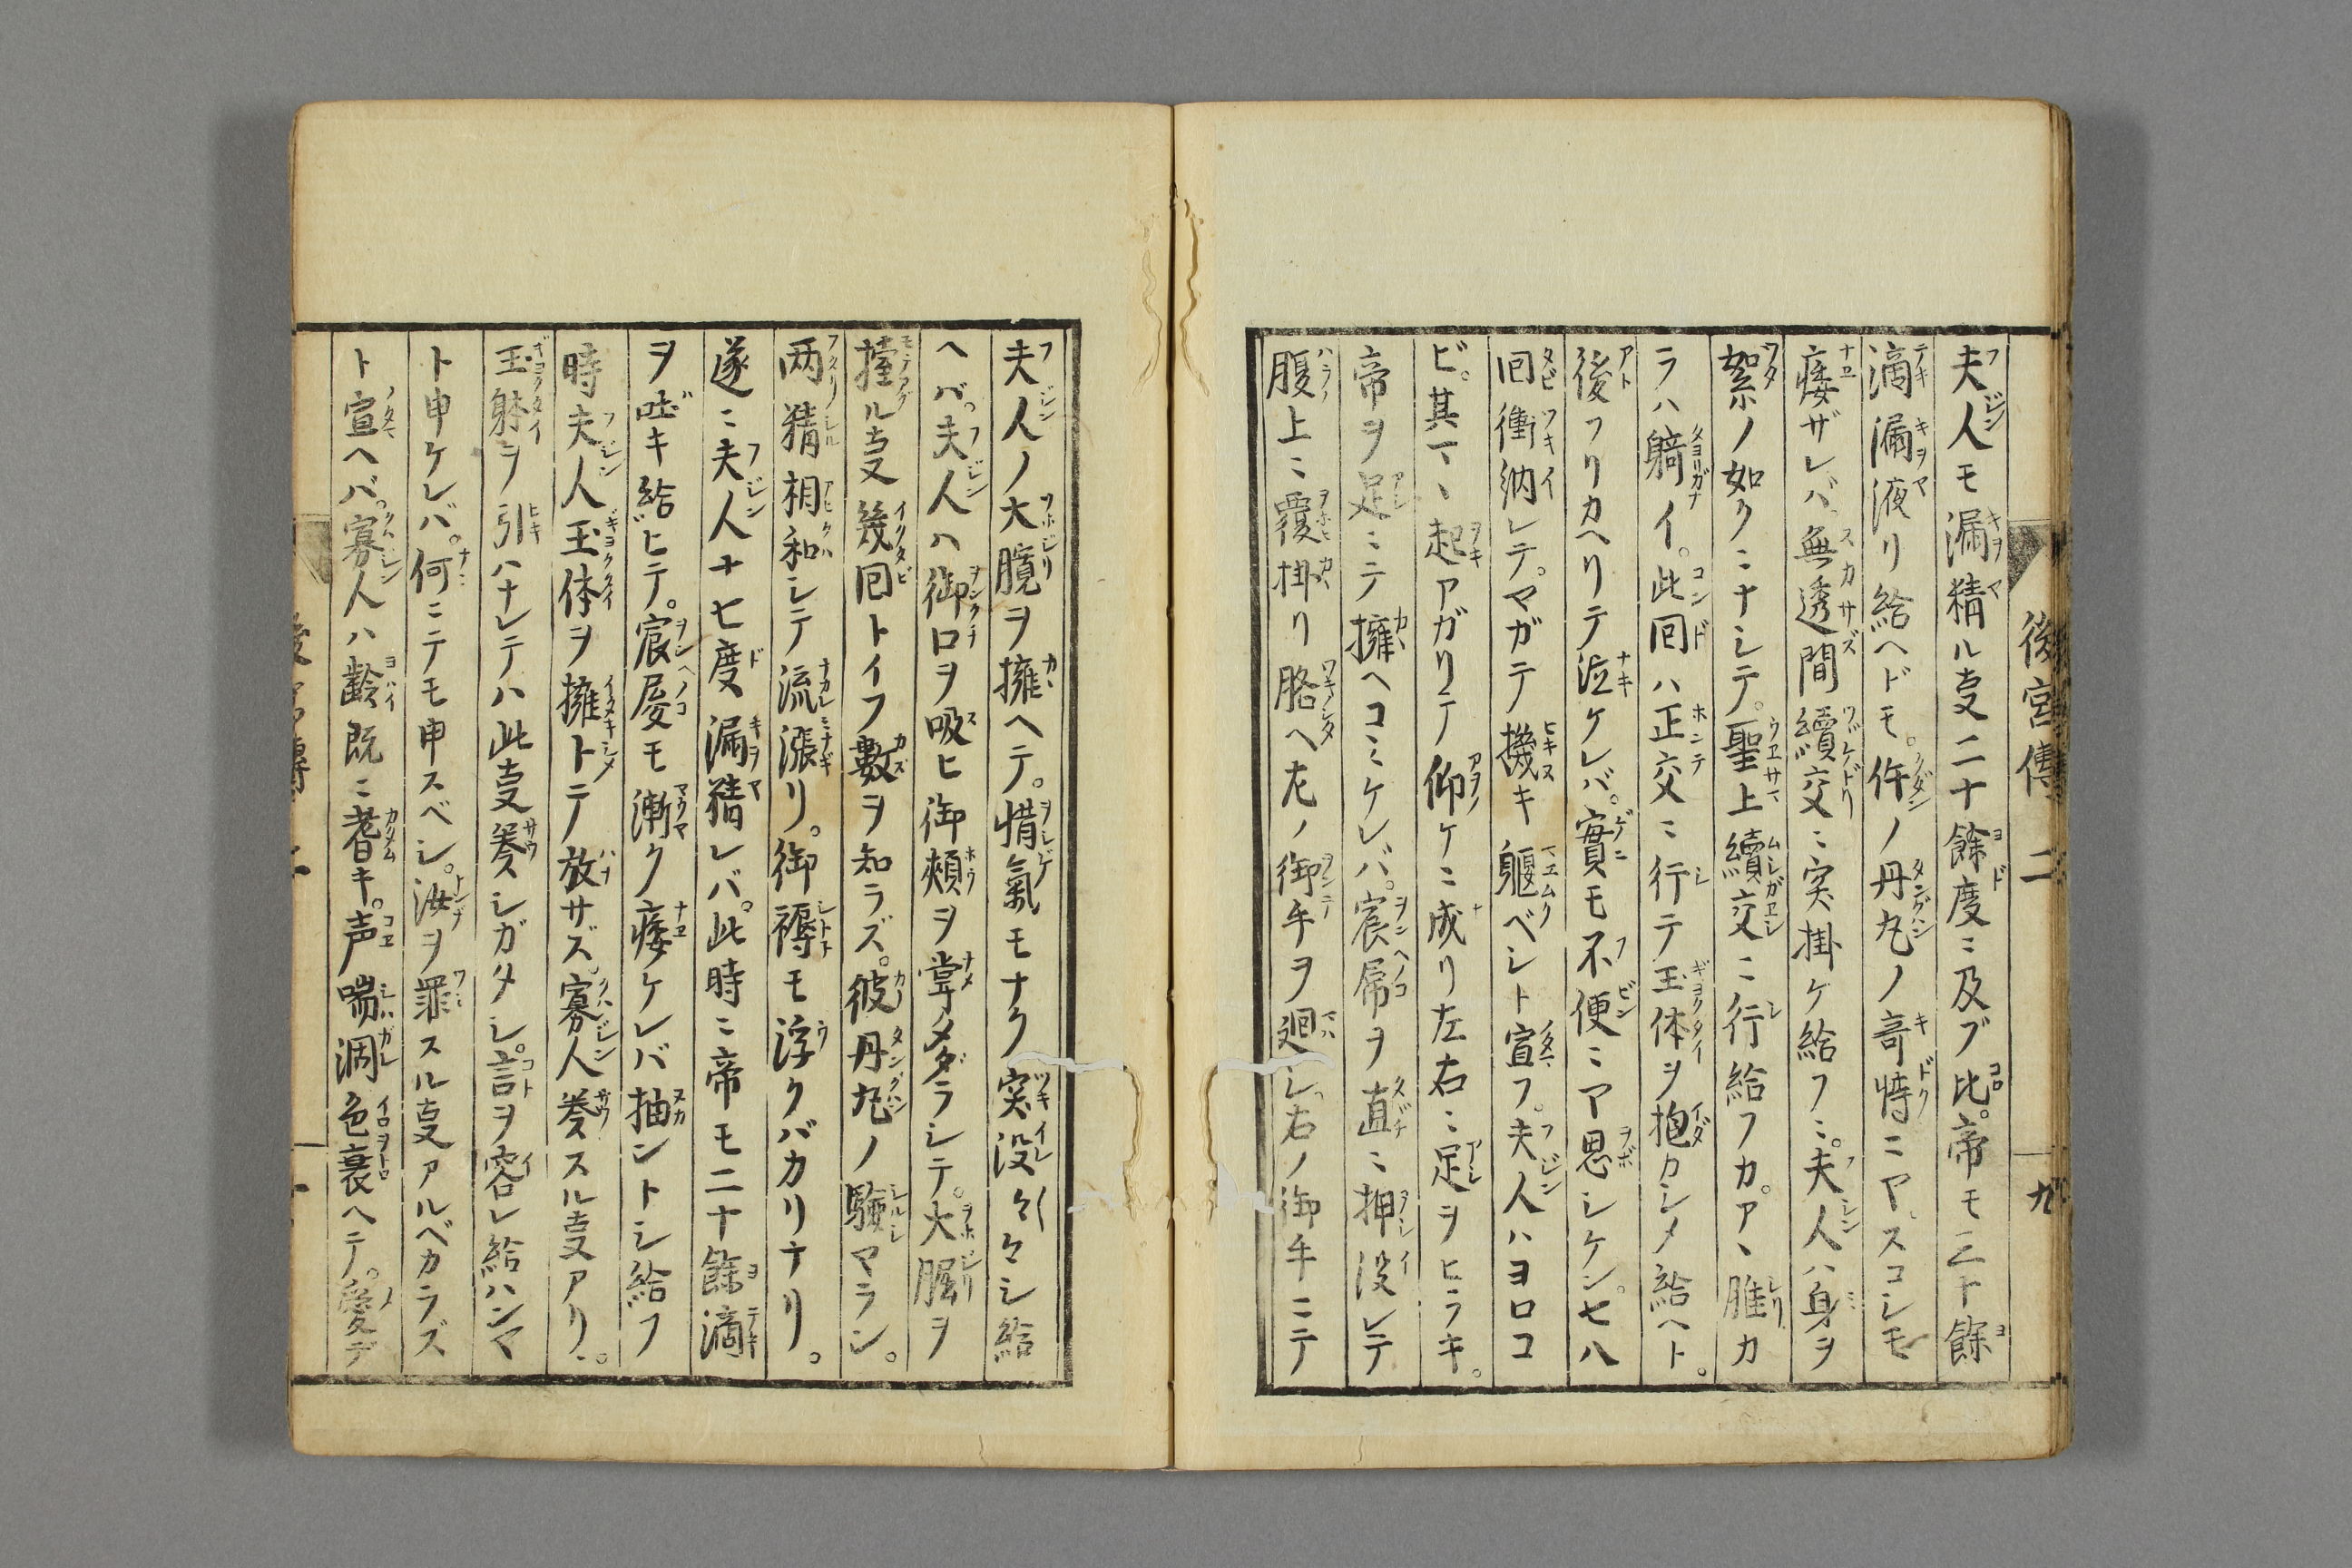 後宮傳 二 九
夫人モ漏精ル叓二十餘度ニ及ブ比。帝モ三十餘
滴漏液リ給ヘドモ。件ノ丹丸ノ竒特ニヤ。スコシモ
痿ザレバ。無透間續交ニ突掛ケ給フニ。夫人ハ身ヲ
絮ノ如クニナシテ。聖上續交ニ行給フカ。アヽ脽カ
ラハ䠊イ。此回ハ正交ニ行テ玉体ヲ抱カシメ給ヘト。
後フリカヘリテ泣ケレバ。實モ不便ニヤ思シケン。七八
回衝納レテ。マガテ機キ軀ベシト宣フ。夫人ハヨロコ
ビ。其マヽ起アガリテ仰ケニ成リ左右ニ足ヲヒラキ。
帝ヲ足ニテ擁ヘコミケレバ。宸屌ヲ直ニ押没レテ
腹上ニ覆掛リ胳ヘ左ノ御手ヲ廻シ。右ノ御手ニテ
夫人ノ大臗ヲ擁ヘテ。惜氣モナク突没々々シ給
ヘバ。夫人ハ御口ヲ吸ヒ御頰ヲ甞メダラシテ。大脶ヲ
擡ル叓幾回トイフ數ヲ知ラズ。彼丹丸ノ驗マラン。
两精相和シテ流漲リ。御褥モ浮クバカリナリ。
遂ニ夫人十七度漏精レバ。此時ニ帝モ二十餘滴
ヲ吐キ給ヒテ。宸屡モ漸ク痿ケレバ抽ントシ給フ
時夫人玉体ヲ擁トテ放サズ。寡人奏スル叓アリ。
玉躰ヲ引ハナレテハ此叓奏シガタシ。言ヲ容レ給ハンマ
ト申ケレバ。何ニテモ申スベシ。汝ヲ罪スル叓アルベカラズ
ト宣ヘバ。寡人ハ齡既ニ耆キ。声喘涸色衰ヘテ。愛デ